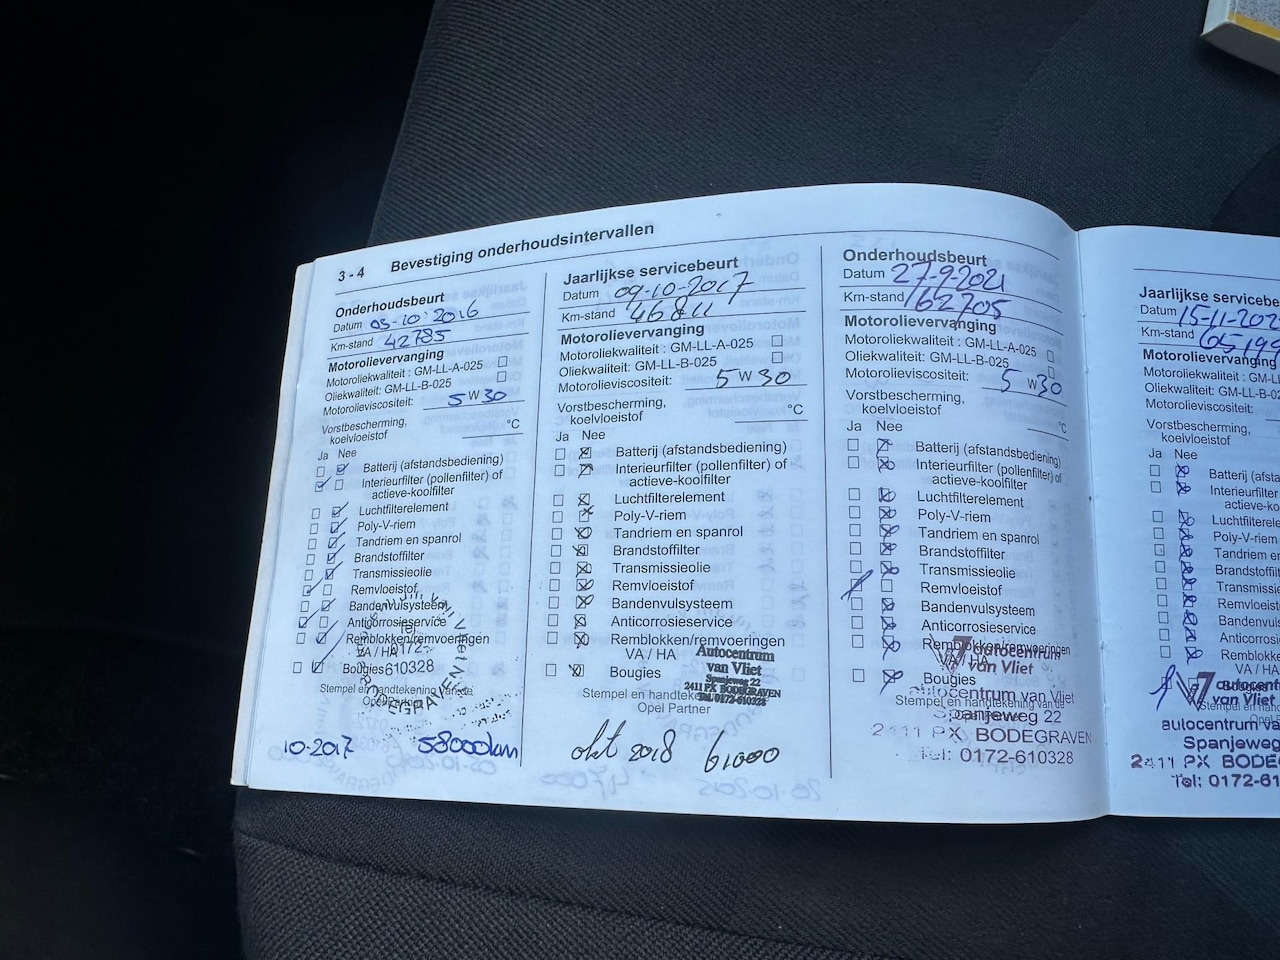 3 - 4 Bevestiging onderhoudsintervallen
Onderhoudsbeurt
Datum 03-10-2016
Km-stand 42785
Motorolievervanging
Motoroliekwaliteit : GM-LL-A-025
Oliekwaliteit: GM-LL-B-025
Motorolieviscositeit: 5 W 30
Vorstbescherming,
koelvloeistof °C
Ja Nee
Batterij (afstandsbediening)
Interieurfilter (pollenfilter) of
actieve-koolfilter
Luchtfilterelement
Poly-V-riem
Tandriem en spanrol
Brandstoffilter
Transmissieolie
Remvloeistof
Bandenvulsysteem
Anticorrosieservice
Remblokken/remvoeringen
VA / HA
Bougies
610328
Stempel en handtekening van de
Opel Partner
10-2017 58000km
Jaarlijkse servicebeurt
Datum 09-10-2017
Km-stand 46811
Motorolievervanging
Motoroliekwaliteit : GM-LL-A-025
Oliekwaliteit: GM-LL-B-025
Motorolieviscositeit: 5 W 30
Vorstbescherming,
koelvloeistof °C
Ja Nee
Batterij (afstandsbediening)
Interieurfilter (pollenfilter) of
actieve-koolfilter
Luchtfilterelement
Poly-V-riem
Tandriem en spanrol
Brandstoffilter
Transmissieolie
Remvloeistof
Bandenvulsysteem
Anticorrosieservice
Remblokken/remvoeringen
VA / HA
Bougies
Autocentrum
van Vliet
Spanjeweg 22
2411 PX BODEGRAVEN
Tel. 0172-610328
Stempel en handtekening
Opel Partner
okt 2018 61000
Onderhoudsbeurt
Datum 27-9-2021
Km-stand 62705
Motorolievervanging
Motoroliekwaliteit: GM-LL-A-025
Oliekwaliteit: GM-LL-B-025
Motorolieviscositeit: 5 W 30
Vorstbescherming,
koelvloeistof °C
Ja Nee
Batterij (afstandsbediening)
Interieurfilter (pollenfilter) of
actieve-koolfilter
Luchtfilterelement
Poly-V-riem
Tandriem en spanrol
Brandstoffilter
Transmissieolie
Remvloeistof
Bandenvulsysteem
Anticorrosieservice
Remblokken/remvoeringen
VA / HA
Bougies
autocentrum
van Vliet
Stempel en handtekening van de
autocentrum van Vliet
Spanjeweg 22
2411 PX BODEGRAVEN
Tel: 0172-610328
Jaarlijkse servicebe
Datum 15-11-202
Km-stand 65199
Motorolievervanging
Motoroliekwaliteit: GM-L
Oliekwaliteit: GM-LL-B-02
Motorolieviscositeit:
Vorstbescherming,
koelvloeistof
Ja Nee
Batterij (afsta
Interieurfilter
actieve-koo
Luchtfiltere
Poly-V-riem
Tandriem e
Brandstoffi
Transmiss
Remvloeist
Bandenvul
Anticorrosi
Remblokke
VA / HA
autocentrum
van Vliet
Stempel en hand
Opel
autocentrum va
Spanjeweg
2411 PX BODE
Tel: 0172-61